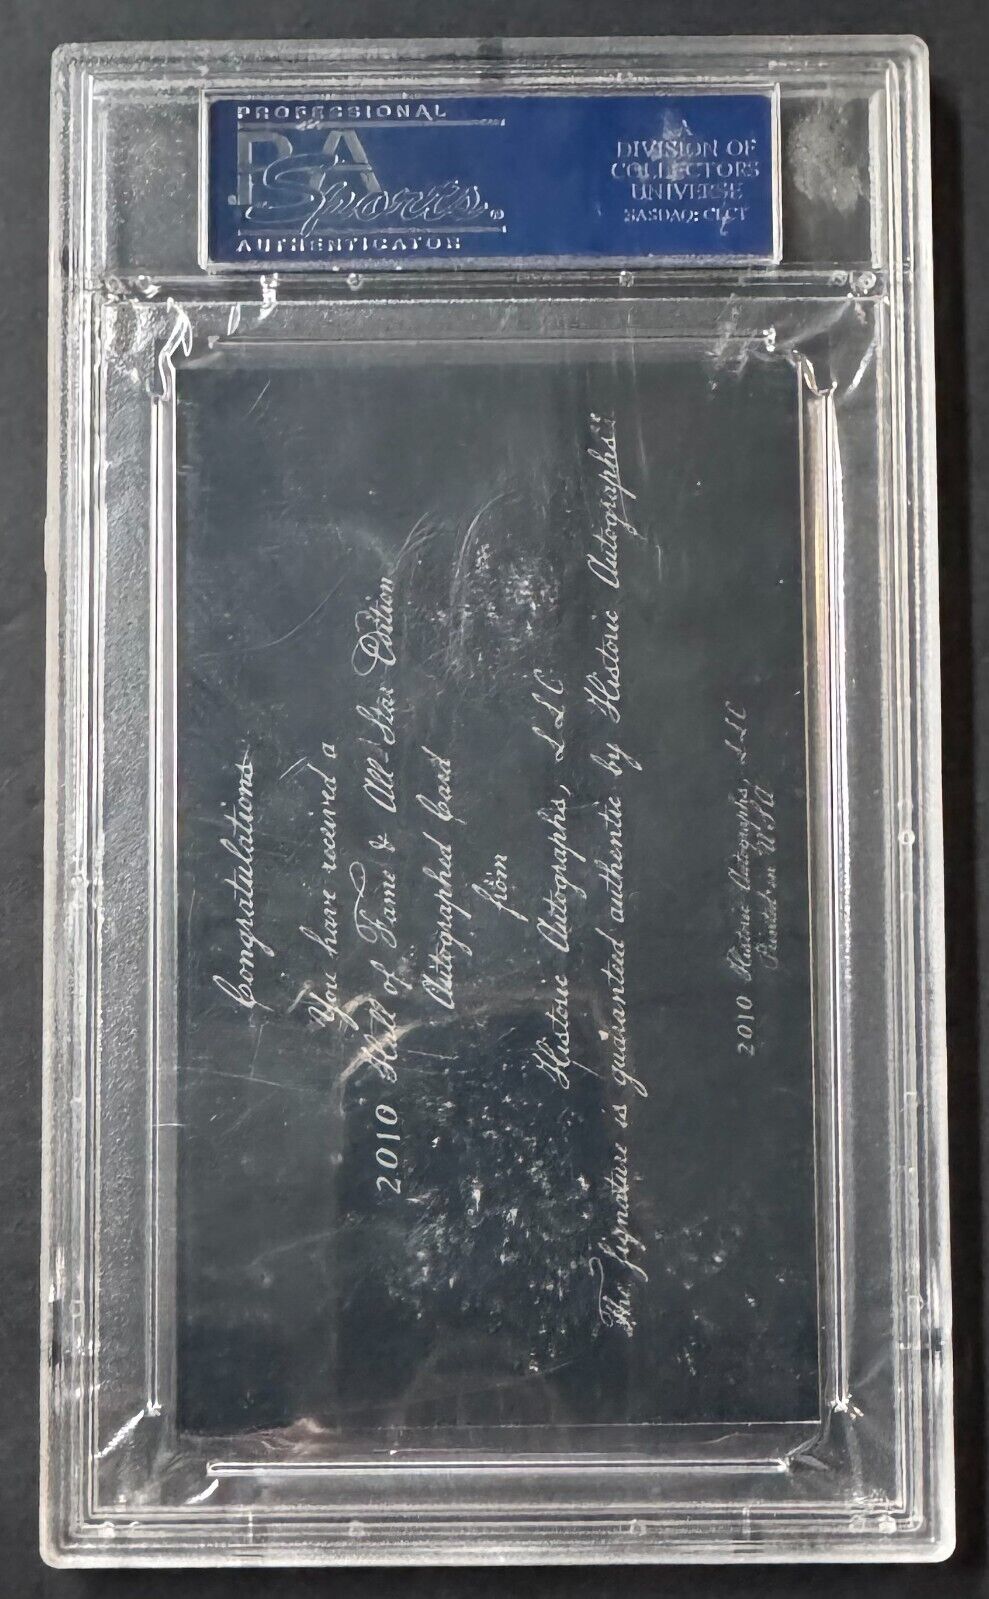 PROFESSIONAL
PSA
Sports®
AUTHENTICATOR
A
DIVISION OF
COLLECTORS
UNIVERSE
NASDAQ: CLCT
Congratulations
You have received a
2010 Hall of Fame & All-Star Edition
Autographed Card
from
Historic Autographs, LLC
The signature is guaranteed authentic by Historic Autographs
2010 Historic Autographs, LLC
Printed in USA